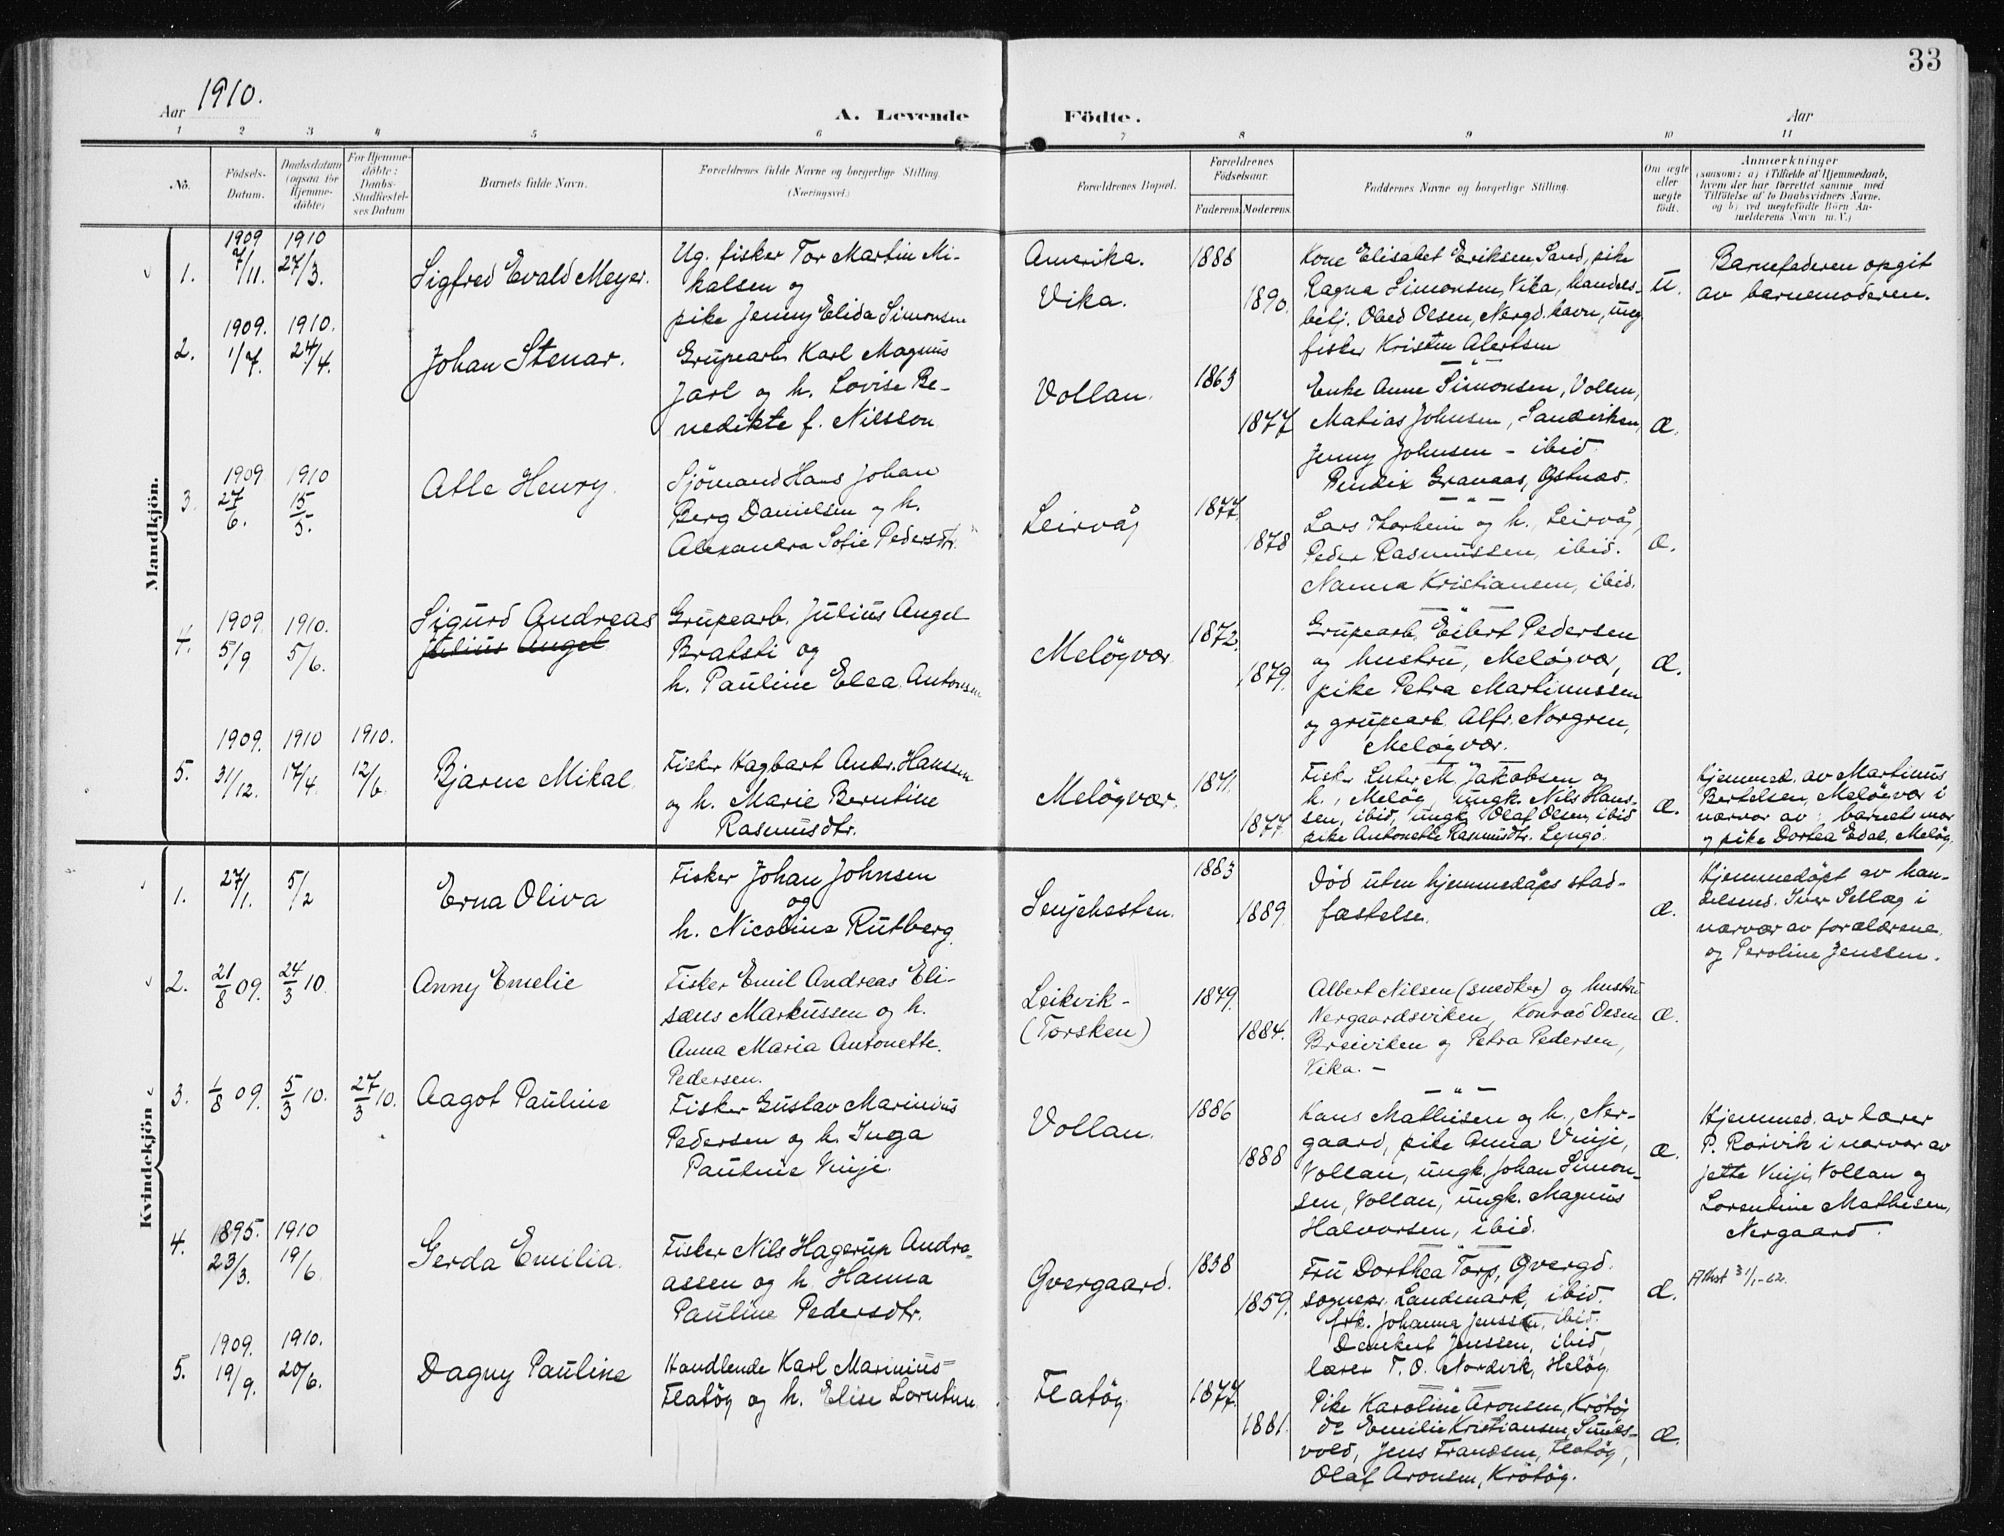 33
Aar 1910.
A. Levende Födte.
Aar
1 2 3 4 5 6 7 8 9 10 11
No.
Födsels-
Datum.
Daabsdatum
(ogsaa for
Hjemme-
döbte)
For Hjemme-
döbte:
Daabs-
Stadfæstel-
ses Datum
Barnets fulde Navn.
Forældrenes fulde Navne og borgerlige Stilling
(Næringsvei.)
Forældrenes Bopæl.
Forældrenes
Födselsaar.
Faderens Moderens.
Faddernes Navne og borgerlige Stilling.
Om ægte
eller
uægte
født.
Anmærkninger
(saasom: a) (Tilfælde af Hjemmedaab,
hvem der har forrettet samme med
Tilföielse af to Daabsvidners Navne.
og b) ved uægtefödte Börn An-
melderens Navn m. V.)
Mandkjön.
1.
1909
7/11.
1910
27/3.
Sigfred Evald Meyer.
Ug. fisker Tor Martin Mi-
kalsen og
pike Jenny Elida Simonsen
Amerika.
Vika.
1888
1890.
Kone Elisabet Eriksen Sand, pike
Ragna Simonsen, Vika, handels-
betj. Obed Olsen, Nergd. havn, ung
fisker Kristen Alertsen
U.
Barnefaderen opgit
av barnemoderen.
2.
1909.
1/7.
1910.
24/4.
Johan Stenar.
Grupearb. Karl Magnus
Jarl og h. Lovise Be-
nedikte f. Nilsson
Vollan.
1863
1877
Enke Anne Simonsen, Vollan,
Matias Johnsen, Sandviken,
Jenny Johnsen - ibid
Bendix Granaas, Østnæs.
Æ.
3.
1909
27/6.
1910
15/5.
Atle Henry.
Sjömand Hans Johan
Berg Danielsen og h.
Alexandra Sofie Pedersdtr.
Leirvåg
1877.
1878
Lars Thorheim og h., Leirvåg,
Peder Rasmussen, ibid.
Nanna Kristiansen, ibid.
Æ.
4.
1909.
5/9
1910.
5/6.
Sigurd Andreas
Julius Angel
Grupearb. Julius Angel
Bratsti og
h. Pauline Elea Antonsen
Meløyvær
1872.
1879.
Grupearb. Eilert Pedersen
og hustru, Meløyvær,
pike Petra Martinussen
og grupearb. Alfr. Norgren,
Meløyvær.
Æ.
5.
1909.
31/12.
1910
17/4.
1910.
12/6
Bjarne Mikal
Fisker Hagbart Andr. Hanssen
og h. Marie Berntine
Rasmusdtr.
Meløyvær.
1871.
1877
Fisker Luter M. Jakobsen og
h., Meløy, ungk. Nils Hans-
sen, ibid, ungk. Olaf Olsen, ibid
pike Antonette Rasmusdtr. Lyngö.
Æ.
Hjemmed. av Martinus
Bertelsen, Meløyvær i
nærvær av: barnets mor
og pike Dortea Edal, Meløy
Kvindekjön
1.
27/1.
5/2
Erna Oliva
Fisker Johan Johnsen
og
h. Nicoline Rutberg.
Senjehesten.
1883
1889.
Död uten hjemmedåps stad-
fæstelse.
Æ.
Hjemmedöpt av han-
delsmd. Iver Sellæg i
nærvær av forældrene
og Peroline Jenssen.
2.
21/8 09.
24/3 10.
Anny Emelie
Fisker Emil Andreas Eli-
sæus Markussen og h.
Anna Maria Antonette.
Pedersen.
Leikvik-
(Torsken)
1879.
1884.
Albert Nilsen (snedker) og hustru
Nergaardsviken, Konrad Olsen
Breiviken og Petra Pedersen,
Vika. -
Æ.
3.
1/8 09.
5/3 10.
27/3 10.
Aagot Pauline
Fisker Gustav Marinius
Pedersen og h. Inga
Pauline Vinje.
Vollan.
1886
1888
Hans Mathisen og h., Ner-
gaard, pike Anna Vinje,
Vollan, ungk. Johan Simon-
sen, Vollan, ungk. Magnus
Halvorsen, ibid.
Æ.
Hjemmed. av lærer
P. Rørvik i nærvær av
Jette Vinje, Vollan og
Lorentine Mathisen,
Nergaard.
4.
1895.
23/3.
1910
19/6
Gerda Emilia.
Fisker Nils Hagerup Andre-
assen og h. Hanna
Pauline Pedersdtr.
Gvergaard.
1858
1859.
Fru Dorthea Torp, Gvergd.
sognepr. Landmark, ibid.
frk. Johanna Jenssen, ibid.
Denkert Jenssen, ibid,
lærer T. O. Nordvik, Meløy.
Æ.
Attest 3/1-62.
5.
1909.
19/9.
1910.
20/6.
Dagny Pauline
Handlende Karl Marinius
Flatöy og h. Elise Lorntine
Flatöy
1877.
1881.
Pike Karoline Aronsen, Krötöy
do Emelie Kristiansen, Sunds-
vold, Jens Frandsen, Flatöy,
Olaf Aronsen, Krötöy.
Æ.